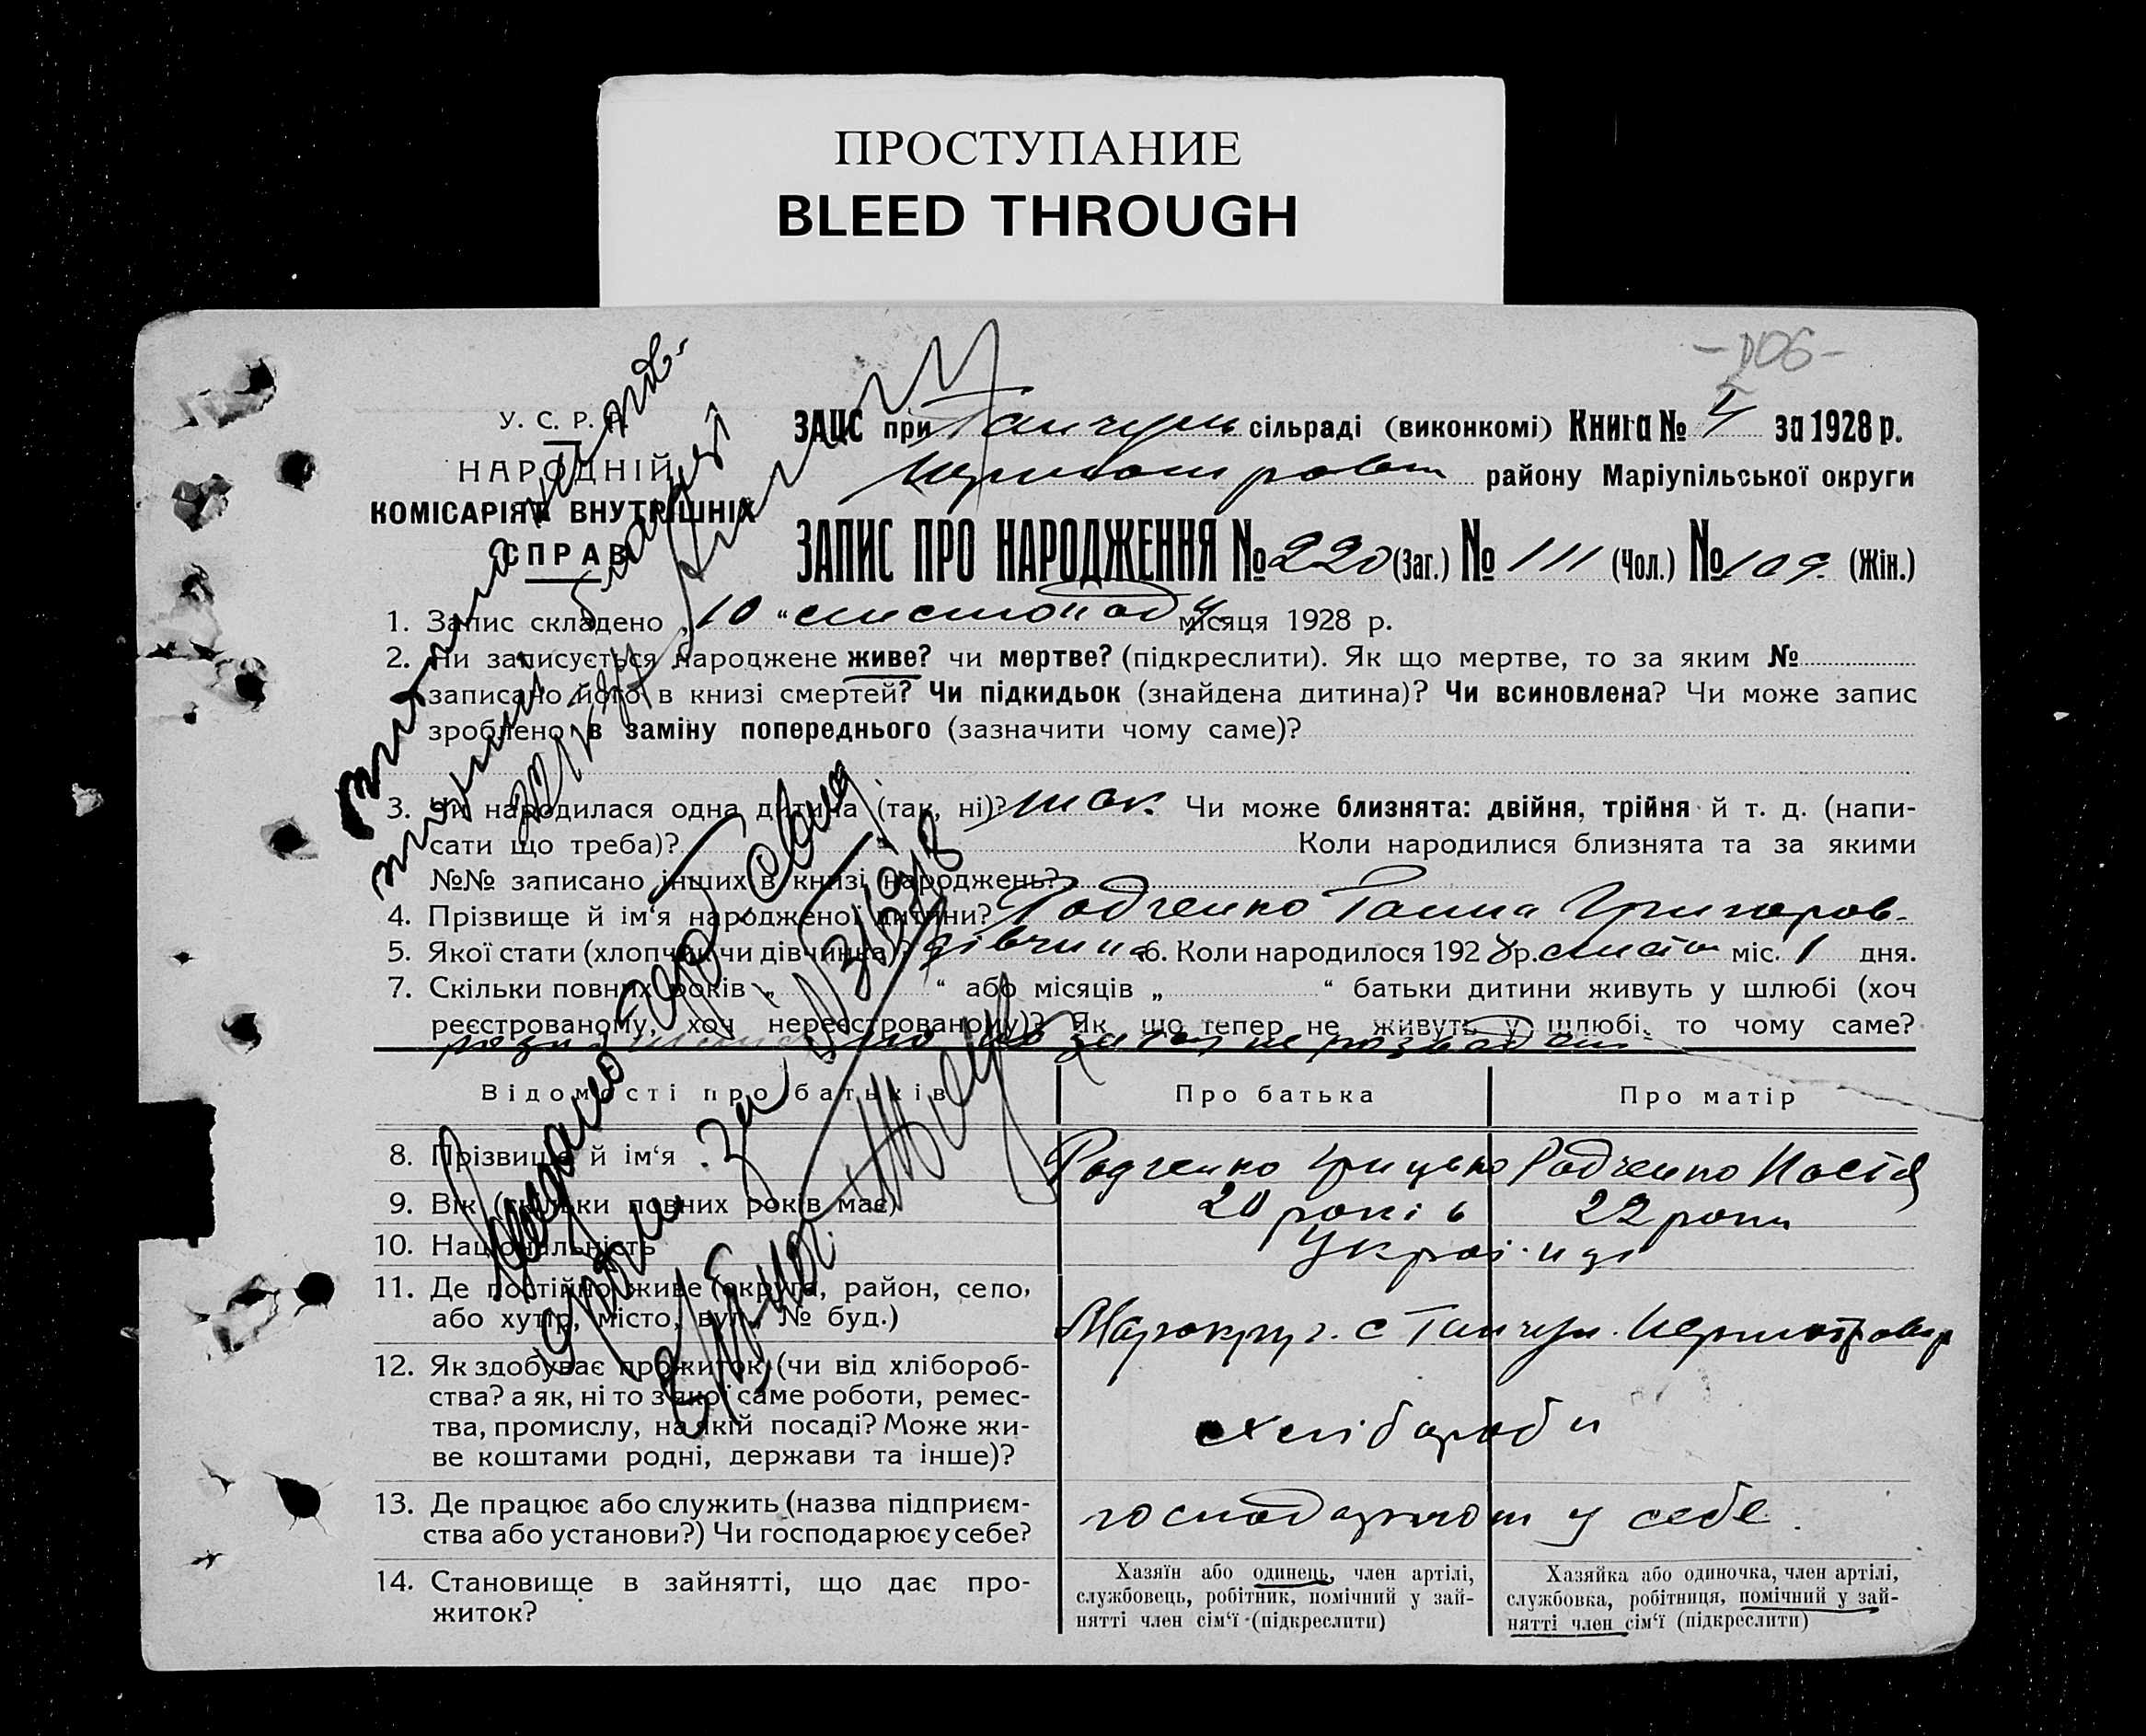 ПРОСТУПАНИЕ
BLEED THROUGH
У. С. Р. Р.
НАРОДНІЙ
КОМІСАРІЯТ ВНУТРІШНІХ
СПРАВ
ЗАЦС при Ганчуль сільраді (виконкомі) Книга № 4 за 1928 р.
району Маріупільської округи
ЗАПИС ПРО НАРОДЖЕННЯ № 220 (Заг.) № 111 (Чол.) № 109. (Жін.)
1. Запис складено „10“ листопаду місяця 1928 р.
2. Чи записується народжене живе? чи мертве? (підкреслити). Як що мертве, то за яким №
записано його в книзі смертей? Чи підкидьок (знайдена дитина)? Чи всиновлена? Чи може запис
зроблено в заміну попереднього (зазначити чому саме)?
3. Чи народилася одна дитина (так, ні)? так. Чи може близнята: двійня, трійня й т. д. (напи-
сати що треба)? Коли народилися близнята та за якими
№№ записано інших в книзі народжень?
4. Прізвище й ім‘я народженої дитини? Радченко Ганна Григоров-
5. Якої стати (хлопчик чи дівчинка)? дівчина 6. Коли народилося 1928 р. листоп міс. 1 дня.
7. Скільки повних років „ “ або місяців „ “ батьки дитини живуть у шлюбі (хоч
реєстрованому, хоч нереєстрованому)? Як що тепер не живуть у шлюбі, то чому саме?
Відомості про батьків Про батька Про матір
8. Прізвище й ім‘я Радченко Грицько Радченко Настя
9. Вік (скільки повних років має) 20 років 22 роки
10. Національність Українці
11. Де постійно живе (округа, район, село,
або хутір, місто, вул., № буд.)
12. Як здобуває прожиток (чи від хлібороб-
ства? а як, ні то з якої саме роботи, ремес-
тва, промислу, на якій посаді? Може жи-
ве коштами родні, держави та інше)?
хлібароби
13. Де працює або служить (назва підприєм-
ства або установи?) Чи господарює у себе?
господарюють у себе.
14. Становище в зайнятті, що дає про-
житок?
Хазяїн або одинець, член артілі,
службовець, робітник, помічний у зай-
нятті член сім‘ї (підкреслити)
Хазяйка або одиночка, член артілі,
службовка, робітниця, помічний у зай-
нятті член сім‘ї (підкреслити)